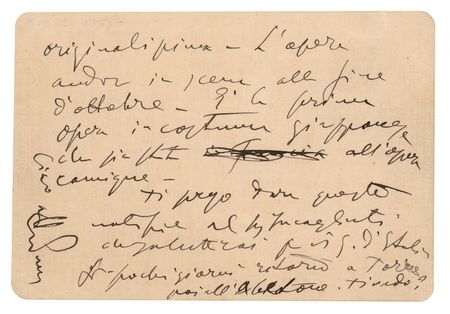 originalissima – L'opera
andrà in scena alla fine
d'ottobre – È la prima
opera in costume giapponese
che si fa all'opéra
comique –
Ti prego dare queste
notizie al
p G. d'Italia
pochi giorni ritorno a Torre
poi all'Abetone.